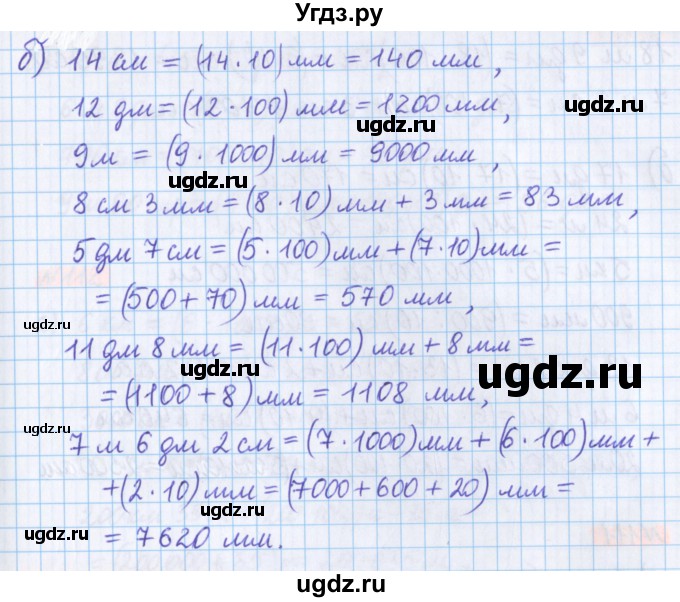 Угдз.ру
б) 14 см = (14·10) мм = 140 мм,
12 дм = (12·100) мм = 1200 мм,
ugdz.ru
ugdz.ru
9 м = (9·1000) мм = 9000 мм,
ugdz.ru
8 см 3 мм = (8·10) мм + 3 мм = 83 мм,
5 дм 7 см = (5·100) мм + (7·10) мм =
= (500 + 70) мм = 570 мм,
ugdz.ru
11 дм 8 мм = (11·100) мм + 8 мм =
ugdz.ru
ugdz.ru
= (1100 + 8) мм = 1108 мм,
ugdz.ru
7 м 6 дм 2 см = (7·1000) мм + (6·100) мм +
+ (2·10) мм = (7000 + 600 + 20) мм =
ugdz.ru
ugdz.ru
= 7620 мм.
ugdz.ru
ugdz.ru